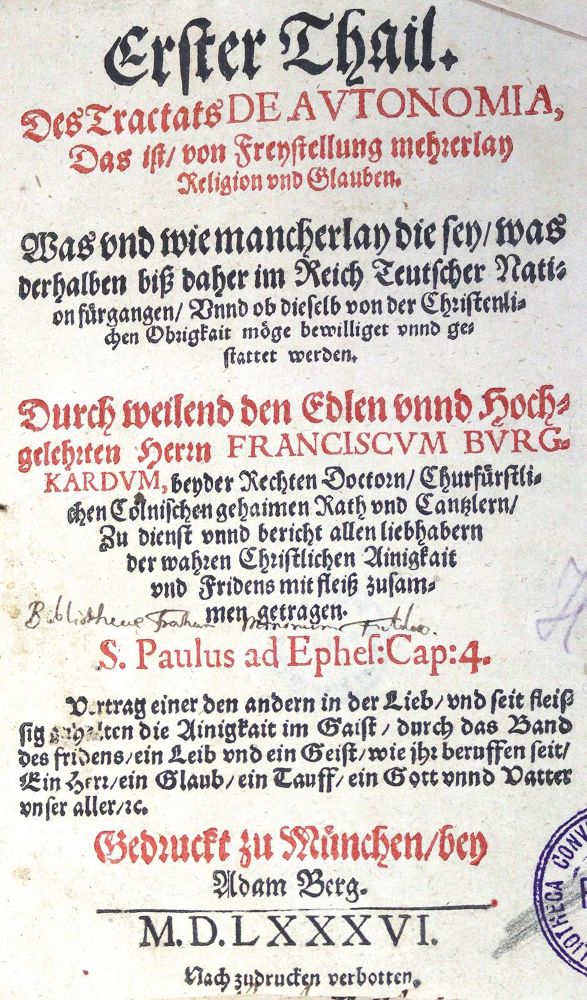 Erster Thail.
Des Tractats DE AVTONOMIA,
Das ist/ von Freystellung mehrerlay
Religion vnd Glauben.
Was vnd wie mancherlay die sey/ was
derhalben biß daher im Reich Teutscher Nati-
on fürgangen/ Vnnd ob dieselb von der Christenli-
chen Obrigkait möge bewilliget vnnd ge-
stattet werden.
Durch weilend den Edlen vnnd Hoch-
gelehrten Herrn FRANCISCVM BVRG-
KARDVM, beyder Rechten Doctorn/ Churfürstli-
chen Cölnischen gehaimen Rath vnd Cantzlern/
Zu dienst vnnd bericht allen liebhabern
der wahren Christlichen Ainigkait
vnd Fridens mit fleiß zusam-
men getragen.
S. Paulus ad Ephes: Cap: 4.
Vertrag einer den andern in der Lieb/ vnd seit fleis-
sig zuhalten die Ainigkait im Gaist/ durch das Band
des fridens/ ein Leib vnd ein Geist/ wie jhr beruffen seit/
Ein Herr/ ein Glaub/ ein Tauff/ ein Gott vnnd Vatter
vnser aller/ ꝛc.
Gedruckt zu München/ bey
Adam Berg.
M.D.LXXXVI.
Nach zudrucken verbotten.